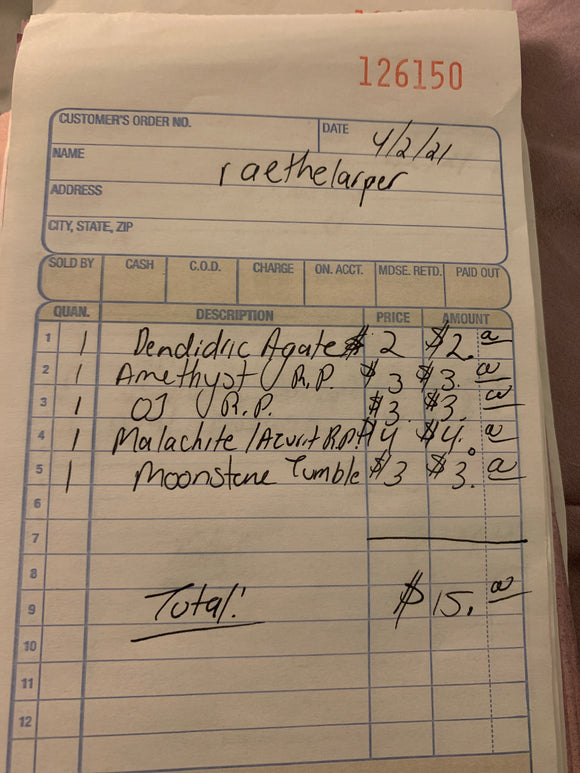 126150
CUSTOMER'S ORDER NO. DATE 4/2/21
NAME raethelarper
ADDRESS
CITY, STATE, ZIP
SOLD BY CASH C.O.D. CHARGE ON. ACCT. MDSE. RETD. PAID OUT
QUAN. DESCRIPTION PRICE AMOUNT
1 1 Dendidric Agate $2 $2.00
2 1 Amethyst R.P. $3 $3.00
3 1 OJ R.P. $3 $3.00
4 1 Malachite/Azurit R.P. $4 $4.00
5 1 Moonstone Tumble $3 $3.00
6
7
8
9 Total! $15.00
10
11
12